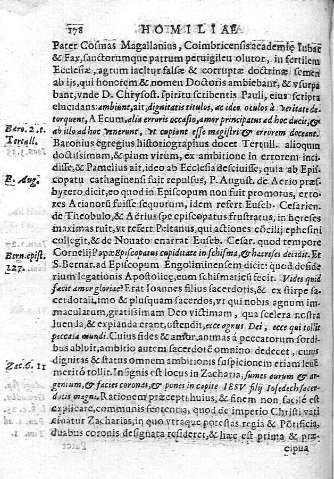 178 HOMILIAE
Pater Cosmas Magallanius, Coimbricensis academię Iubar
& Fax, sanctorumque patrum peruigileu olutor, in fertilem
Ecclesiæ, agrum iacitur falsæ & corruptæ doctrinæ semen
ab ijs, qui honorem & nomen Doctoris ambiebant, & vsurpa
bant, vnde D. Chrysost. spiritu scribentis Pauli, eius scripta
elucidans: ambiunt, ait, dignitatis titulos, ac ideo oculos à veritate de
torquent, A Ecum, alia erroris occasio, amor principatus ad hoc ducit, &
ab illo ad hoc venerunt, vt cupiont esse magistri & errorem doceant.
Baro. 2. t.
Tertull.
Baronius egregius historiographus docet Tertull. alioqun
doctissimum, & pium virum, ex ambitione in errorem inci
disse, & Pamelius ait, ideo ab Ecclesia desciuisse, quia ab Epis
P. Aug.
copatu cathaginensi fuit repulsus, P. August. de Aerio præs
bytero dicit, eo quod in Episcopum non fuit promotus, erro
res Arianorũ fuisse sequutum, idem refert Euseb. Cesarien.
de Theobulo, & Aerius spe episcopatus frustratus, in hęreses
maximas ruit, vt refert Peltanus, qui actiones cõcilij ephesini
collegit, & de Nouato enarrat Euseb. Cesar. quod tempore
Cornelij Papæ Episcopatus cupiditate in schisma, & hæreses decidit. Et
Bern. epist.
127.
S. Bernar. ad Episcopum Engoliminensem dicit: quod deside
rium legationis Apostolicę, eum schismaticũ fecit. Vides quid
facit amor gloriæ? Erat Ioannes filius sacerdotis, & ex stirpe sa
cerdotali, imo & plusquam sacerdos, vt qui nobis agnum im
maculatum, gratissimam Deo victimam, qua scelera nostra
luenda, & expianda erant, ostendit, ecce agnus Dei, ecce qui tollit
peccata mundi. Cuius fides & ansur, animas à peccatorum sordi
bus abluit, ambitio autem sacerdotẽ omnino dedecet, cuius
dignitas & status omnem ambitionis suspicionem etiam leuẽ
Zac. 6. 11
meritò tollit. Insignis est locus in Zacharia, sumes aurum & ar
gentum, & facies coronas, & pones in capite IESV filij Iosedech sacer
dotis magni. Rationem præcepti, huius, & finem non facilè est
explicare, communis sententia, quod de imperio Christi, vati
cinatur Zacharias, in quo vtraque potestas regia & Põtificia,
duabus coronis designata resideret, & hæc est prima & præ
cipua